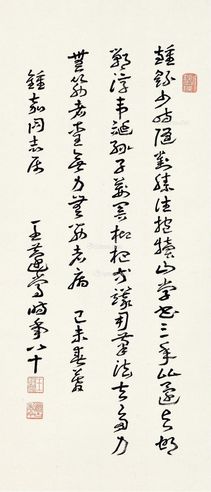 鍾繇少時隨劉勝往抱犢山學書三年比還与邯
鄲淳韋誕孫子荆關枇杷等議用筆法多力
豐筋者聖無力無筋者病 己未春暮
鍾嘉同志屬
王蘧常時年八十